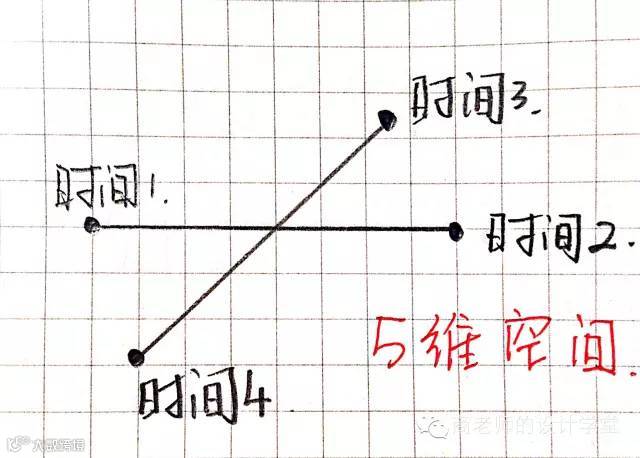 时间3.
时间1.
时间2.
5维空间.
时间4
商老师的设计学堂
大数跨境